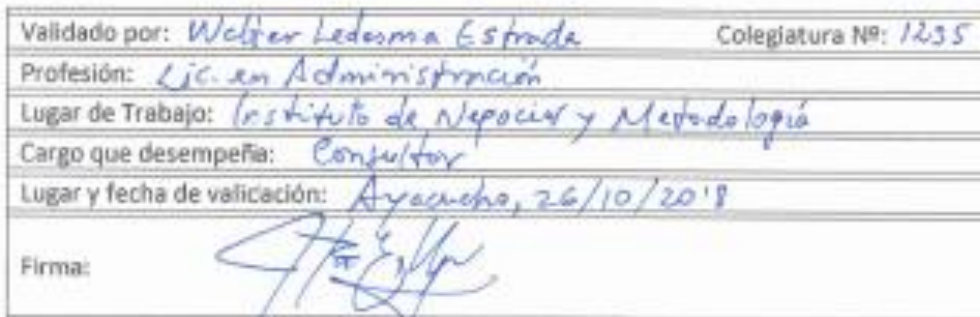 Validado por: Walter Ledesma Estrada Colegiatura Nº: 1235
Profesión: Lic. en Administración
Lugar de Trabajo: Instituto de Negocios y Metodología
Cargo que desempeña: Consultor
Lugar y fecha de valicación: Ayacucho, 26/10/2018
Firma: